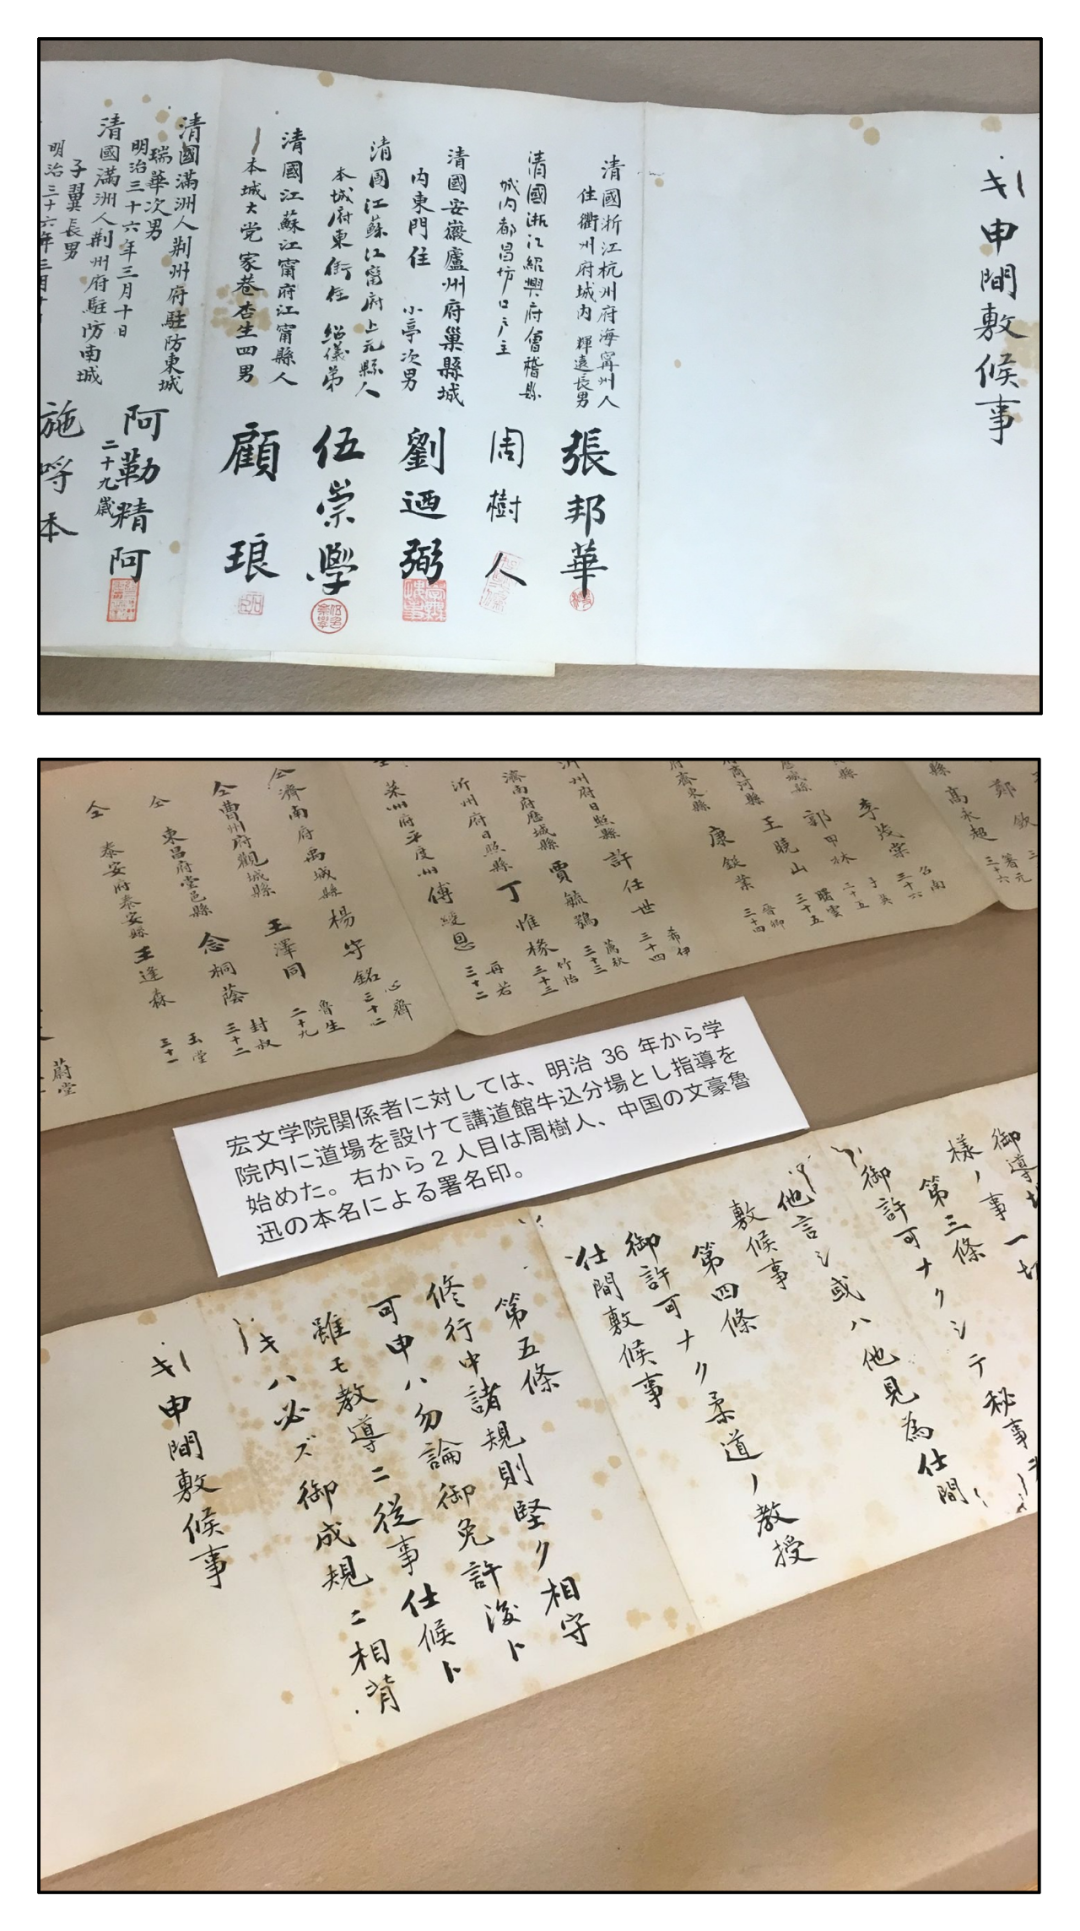 キ申間敷候事
清國浙江杭州府海寧州人
住衢州府城内 輝遠長男
張邦華
清國浙江紹興府會稽縣
城内都昌坊口戸主
周樹人
清國安徽廬州府巢縣城
内東門住 小亭次男
劉迺弼
清國江蘇江甯府上元縣人
本城府東街住 紹儀弟
伍崇學
清國江蘇江甯府江甯縣人
本城大党家巷杏生四男
顧琅
清國滿洲人荆州府駐防東城
瑞華次男
明治三十六年三月十日
阿勒精阿
二十九歳
清國滿洲人荆州府駐防南城
子翼長男
明治三十六年三月十
施呼本
鄭欽
著元
縣高永超
三十六
李茂宗
三十六
子美
三十五
王曉山
曙雲
三十五
康鋌業
三十四
沂州府日照縣許任世
希伊
三十四
濟南府歷城縣賈毓鶚
三十三
沂州府日照縣丁惟椽
竹怡
三十三
萊州府平度州傅綬恩
再若
三十二
仝濟南府禹城縣楊守銘
心齋
三十二
仝曹州府觀城縣王澤同
魯生
二十九
仝 東昌府堂邑縣念桐蔭
封叔
三十二
仝 泰安府泰安縣王逢森
玉堂
三十一
蔚堂
宏文学院関係者に対しては、明治 36 年から学
院内に道場を設けて講道館牛込分場とし指導を
始めた。右から 2 人目は周樹人、中国の文豪魯
迅の本名による署名印。
御導場一切
樣ノ事
第三條
御許可ナクシテ秘事
他言シ或ハ他見為仕間
敷候事
第四條
御許可ナク柔道ノ教授
仕間敷候事
第五條
修行中諸規則堅ク相守
可申ハ勿論御免許後ト
雖モ教導ニ從事仕候ト
キハ必ズ御成規ニ相背
キ申間敷候事